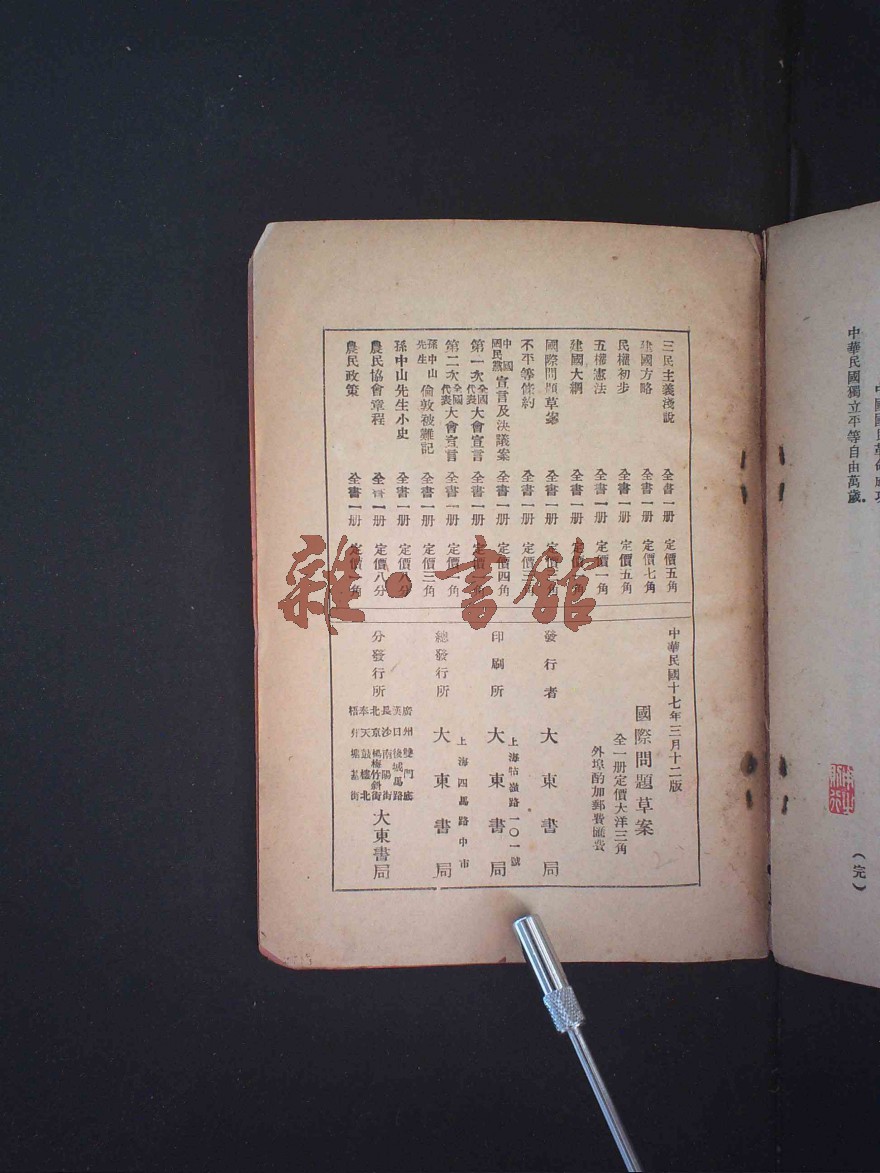 中華民國獨立平等自由萬歲。
（完）
三民主義淺說　全書一册　定價五角
建國方略　全書一册　定價七角
民權初步　全書一册　定價五角
五權憲法　全書一册　定價一角
建國大綱　全書一册　定價一角
國際問題草案　全書一册　定價三角
不平等條約　全書一册　定價三角
中國國民黨宣言及決議案　全書一册　定價四角
第一次全國代表大會宣言　全書一册　定價一角
第二次全國代表大會宣言　全書一册　定價一角
孫中山先生倫敦被難記　全書一册　定價三角
孫中山先生小史　全書一册　定價八分
農民協會章程　全書一册　定價八分
農民政策　全書一册　定價一角
中華民國十七年三月十二版
國際問題草案
全一册定價大洋三角
外埠酌加郵費匯費
發行者　大東書局
上海牯嶺路一〇一號
印刷所　大東書局
上海四馬路中市
總發行所　大東書局
分發行所
廣州雙門底
漢口後城馬路
長沙南陽街
北京楊梅竹斜街
奉天鼓樓北
梧州
大東書局
雜·書館